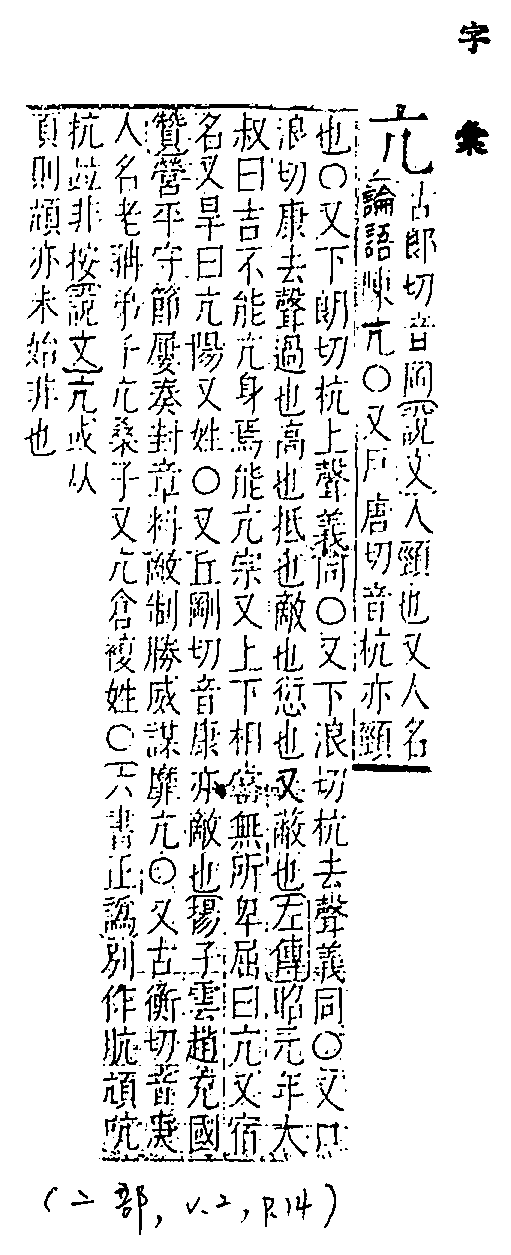 字彙
亢古郎切音岡說文人頸也又人名
論語陳亢○又戶唐切音杭亦頸
也○又下朗切杭上聲義同○又下浪切杭去聲義同○又口
浪切康去聲過也高也抵也敵也愆也又蔽也左傳昭元年大
叔曰吉不能亢身焉能亢宗又上下相當無所卑屈曰亢又宿
名又旱曰亢陽又姓○又丘剛切音康亦敵也揚子雲趙充國
贊營平守節屢奏封章料敵制勝威謀靡亢○又古衡切音庚
人名老聃弟子亢桑子又亢倉複姓○六書正譌別作肮頏吭
抗並非按說文亢或从
頁則頏亦未始非也
(二部, v.2, p.14)